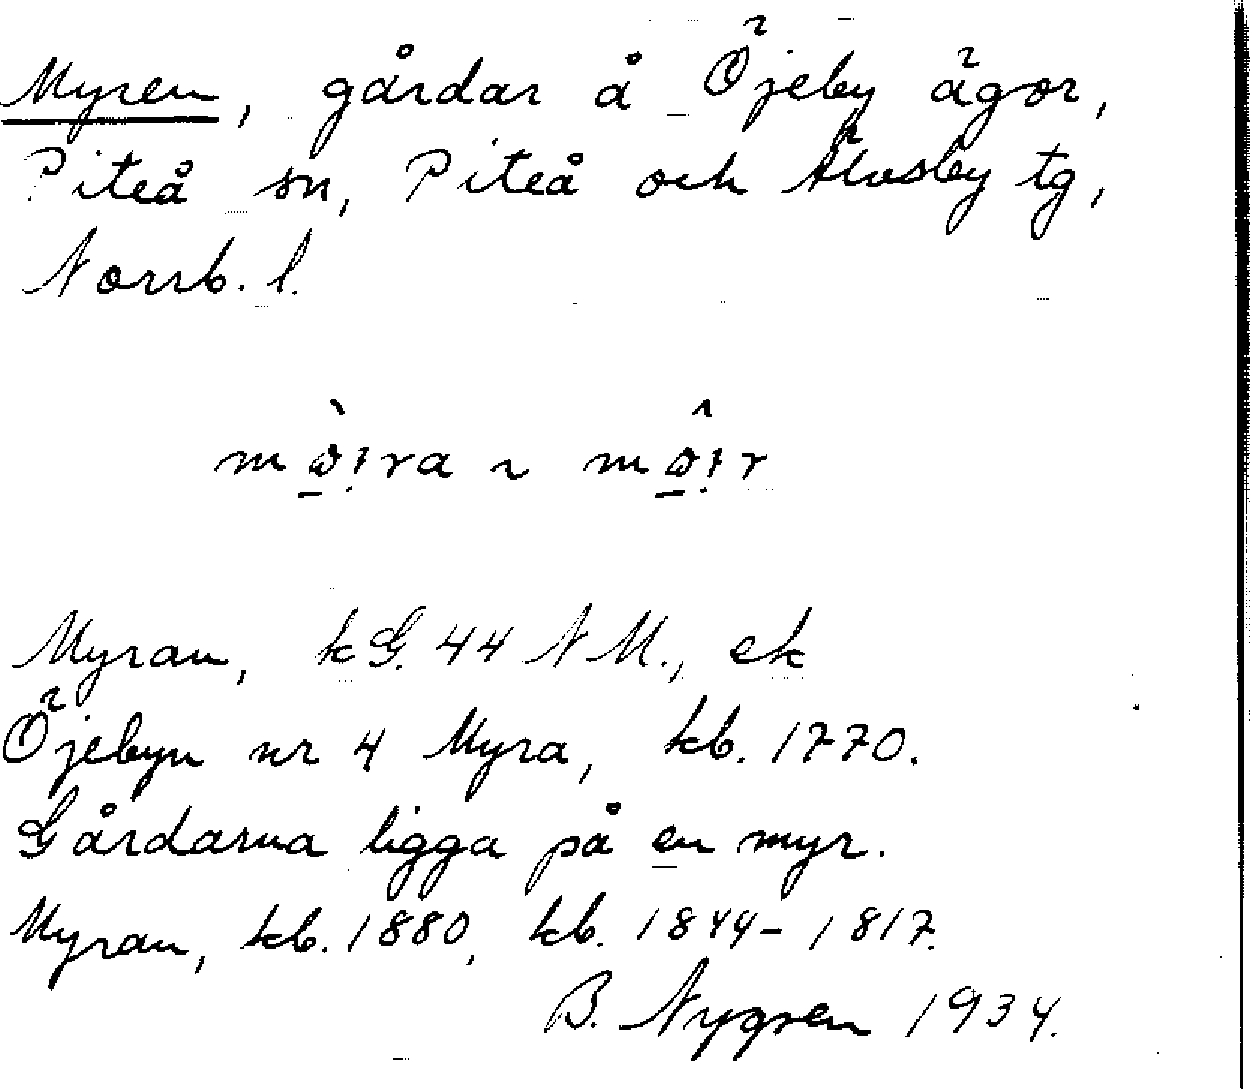 Myren, gårdar å Öjeby ägor,
Piteå sn, Piteå och Älvsby tg,
Norrb. l.
Myran, kG. 44 N M., ek
Öjebyn nr 4 Myra, kb. 1770.
Gårdarna ligga på en myr.
Myran, kb. 1880, kb. 1844-1817.
B. Nygren 1934.